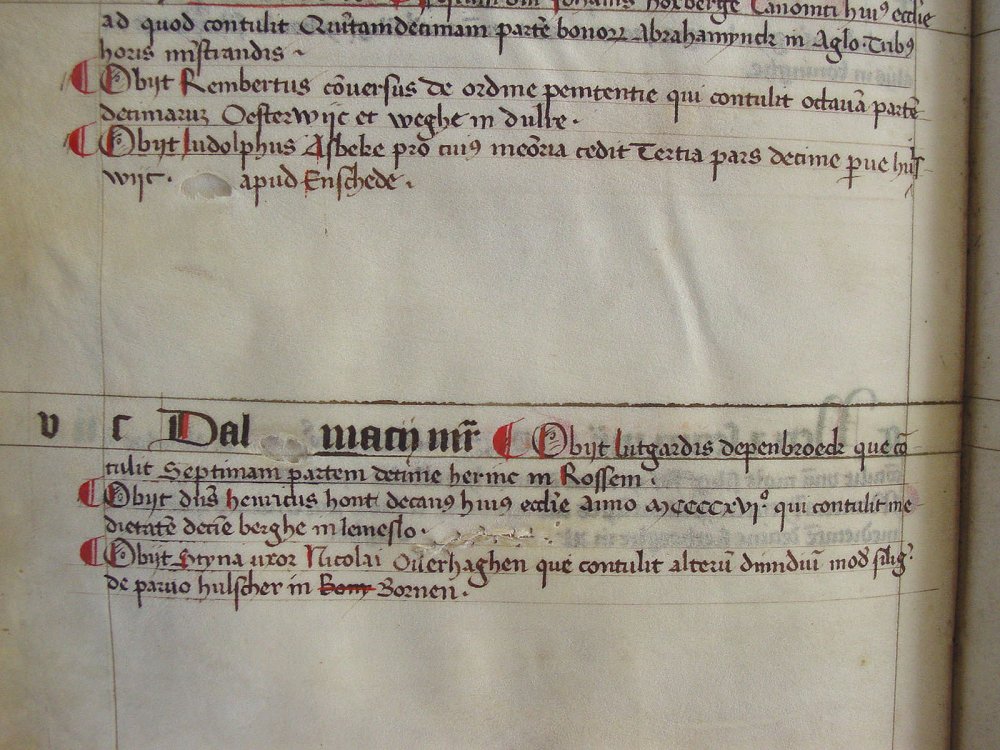 Johannis Horberge Canonici hui⁹ ecclie
ad quod contulit Quītamdecimam partē bonorꝝ Abrahamynck in Aglo. Tub⁹
horis mīstrandis .
Obijt Rembertus cōversus de ordine penitentie qui contulit octavā partē
decimaruꝫ Oesterwijc et weghe in dulre .
Obijt Ludolphus Asbeke pro cui⁹ meōria cedit Tertia pars decime ꝑue huls
wijc . apud Enschede .
v c Dal matij mr̄ Obijt lutgardis depenbroeck que cō
tulit Septimam partem decime herinc in Rossem .
Obijt dn̄s henricus hont decan⁹ hui⁹ ecclīe Anno MCCCCXVI° qui contulit me
dietatē decīe berghe in lemeslo .
Obijt Styna uxor Nicolai Overhaghen que contulit alterū dimidiū mod̄ siliḡ
de parvo hulscher in Born Bornen .